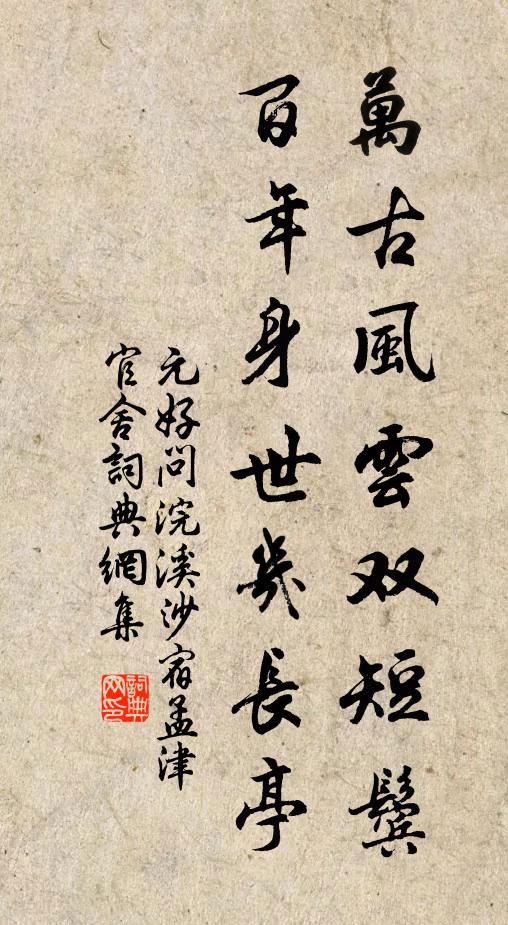 萬古風雲双短鬢
百年身世幾長亭
元好問浣溪沙宿孟津
官舍詞典網集
詞典
网印